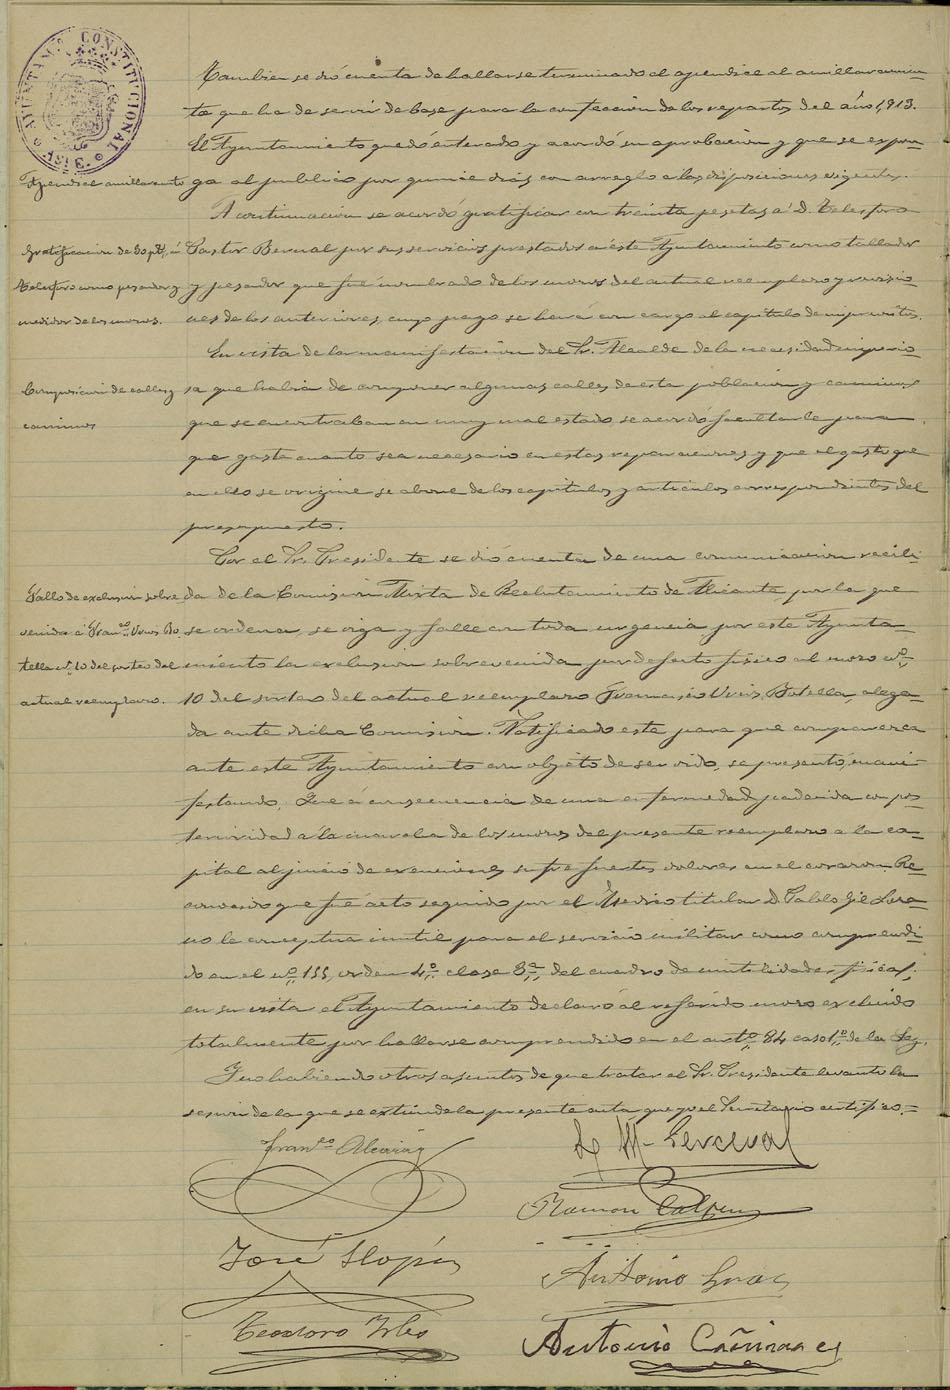 AYUNTAMTO CONSTITUCIONAL
Tambien se dió cuenta de hallarse terminado el apendice al amillaramien-
to que ha de servir de base para la confeccion de los repartos del año 1,913.
El Ayuntamiento quedó enterado y acordó su aprobacion y que se expon-
Apendice amillaramiento
ga al publico por quince dias con arreglo a las disposiciones vigentes.
A continuacion se acordó gratificar con treinta pesetas á D. Telesforo
Gratificacion de 30 pts, á
Pastor Bernal por sus servicios prestados a este Ayuntamiento como tallador
Telesforo como pesador y
y pesador que fué nombrado de los mozos del actual reemplazo y revisio-
medidor de los mozos.
nes de los anteriores, cuyo pago se hará con cargo al capitulo de imprevistos.
En vista de la manifestacion del Sr. Alcalde de la necesidad imperio-
Composicion de calles y
sa que habia de componer algunas calles de esta poblacion y caminos
caminos
que se encontraban en muy mal estado, se acordó facultarle para
que gaste cuanto sea necesario en estas reparaciones y que el gasto que
en ello se origine se abone de los capitulos y articulos correspondientes del
presupuesto.
Por el Sr. Presidente se dió cuenta de una comunicacion recibi-
Fallo de exclusion sobre
da de la Comision Mixta de Reclutamiento de Alicante, por la que
venida á Franco
se ordena, se oiga y falle con toda urgencia por este Ayunta-
tella nº 10 del sorteo del
miento la exclusion sobrevenida por defecto fisico al mozo nº
actual reemplazo.
10 del sorteo del actual reemplazo Botella, alega-
da ante dicha Comision. Notificado este para que comparezca
ante este Ayuntamiento con objeto de ser oido, se presentó, mani-
festando: Que á consecuencia de una enfermedad padecida con pos-
terioridad a la marcha de los mozos del presente reemplazo a la ca-
pital al juicio de exenciones sufre fuertes dolores en el corazon. Re-
conocido que fué acto seguido por el Medico titular D. Pablo Gil Loza-
no le conceptua inutil para el servicio militar como comprendi-
do en el nº 155, orden 4º clase 3ª, del cuadro de inutilidades fisicas;
en su vista el Ayuntamiento declaró al referido mozo excluido
totalmente por hallarse comprendido en el artº 84 caso 1º de la Ley.
Y no habiendo otros asuntos de que tratar el Sr. Presidente levantó la
sesion de la que se extiende la presente acta que yo el Secretario certifico.=
Franco Alcaráz
M. Perceval
Ramon
José Llopis
Antonio
Teodoro Irles
Antonio Cañizares